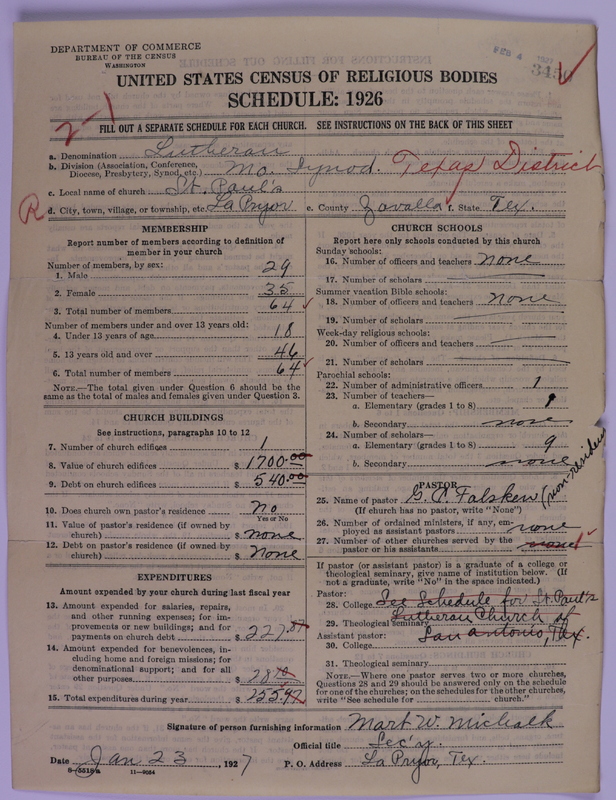 DEPARTMENT OF COMMERCE
BUREAU OF THE CENSUS
WASHINGTON
FEB 4 1927
UNITED STATES CENSUS OF RELIGIOUS BODIES
SCHEDULE: 1926
2-1
FILL OUT A SEPARATE SCHEDULE FOR EACH CHURCH. SEE INSTRUCTIONS ON THE BACK OF THIS SHEET
a. Denomination Lutheran
b. Division (Association, Conference, Diocese, Presbytery, Synod, etc.) Mo. Synod. Texas District
c. Local name of church St. Paul's
R
d. City, town, village, or township, etc. La Pryor e. County Zavalla f. State Tex.
MEMBERSHIP
Report number of members according to definition of
member in your church
Number of members, by sex:
1. Male 29
2. Female 35
3. Total number of members 64
Number of members under and over 13 years old:
4. Under 13 years of age 18
5. 13 years old and over 46
6. Total number of members 64
NOTE.—The total given under Question 6 should be
same as the total of males and females given under Question 3.
CHURCH BUILDINGS
See instructions, paragraphs 10 to 12
7. Number of church edifices 1
8. Value of church edifices $ 1700.00
9. Debt on church edifices $ 540.00
10. Does church own pastor's residence no
Yes or No
11. Value of pastor's residence (if owned by
church) $ none
12. Debt on pastor's residence (if owned by
church) $ none
EXPENDITURES
Amount expended by your church during last fiscal year
13. Amount expended for salaries, repairs,
and other running expenses; for im-
provements or new buildings; and for
payments on church debt $ 227
14. Amount expended for benevolences, in-
cluding home and foreign missions; for
denominational support; and for all
other purposes $ 28
15. Total expenditures during year $ 255
CHURCH SCHOOLS
Report here only schools conducted by this church
Sunday schools:
16. Number of officers and teachers none
17. Number of scholars
Summer vacation Bible schools:
18. Number of officers and teachers none
19. Number of scholars
Week-day religious schools:
20. Number of officers and teachers
21. Number of scholars
Parochial schools:
22. Number of administrative officers 1
23. Number of teachers—
a. Elementary (grades 1 to 8) 1
b. Secondary none
24. Number of scholars—
a. Elementary (grades 1 to 8) 9
b. Secondary none
PASTOR
25. Name of pastor (non-resident)
(If church has no pastor, write "None")
26. Number of ordained ministers, if any, em-
ployed as assistant pastors none
27. Number of other churches served by the
pastor or his assistants none 1
If pastor (or assistant pastor) is a graduate of a college or
theological seminary, give name of institution below. (If
not a graduate, write "No" in the space indicated.)
Pastor:
28. College See Schedule for St. Paul's
29. Theological seminary Lutheran Church of
Assistant pastor: San Antonio, Tex.
30. College
31. Theological seminary
NOTE.—Where one pastor serves two or more churches,
Questions 28 and 29 should be answered only on the schedule
for one of the churches; on the schedules for the other churches,
write "See schedule for church."
Signature of person furnishing information Mart W. Michalk
Official title Sec'y.
Date Jan 23, 1927 P. O. Address La Pryor, Tex.
8-5518a 11-9054